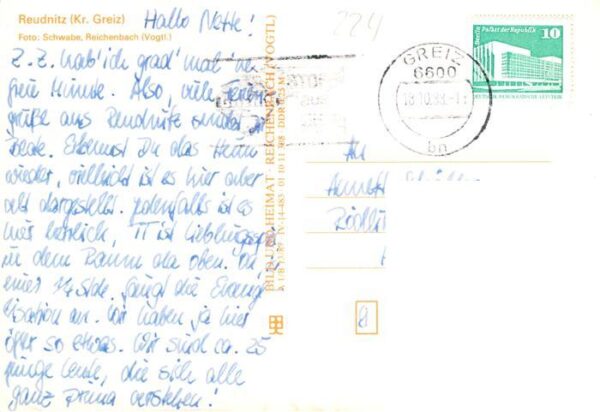 Reudnitz (Kr. Greiz)
Foto: Schwabe, Reichenbach (Vogtl.)
Hallo Nette!
Z. Z. hab' ich grad' mal 'ne
freie Minute. Also, viele
grüße aus Reudnitz sendet Dir
Erkennst Du das Heim
wieder, vielleicht ist es hier aber
dargestellt. Jedenfalls ist es
hier herrlich, TT ist Lieblingsspiel
in dem Raum da oben. In
einer 1/2 Stde. fängt die Evange
lisation an. Wir haben ja hier
öfter so etwas. Wir sind ca. 25
junge Leute, die sich alle
ganz prima verstehen!
224
BILD UND HEIMAT · REICHENBACH (VOGTL)
A 1/B 13/87 IV-14-483 01 10 11 308 DDR
GREIZ
6600
18.10.88
bn
Berlin Palast der Republik
10
DEUTSCHE DEMOKRATISCHE REPUBLIK
An
Annett